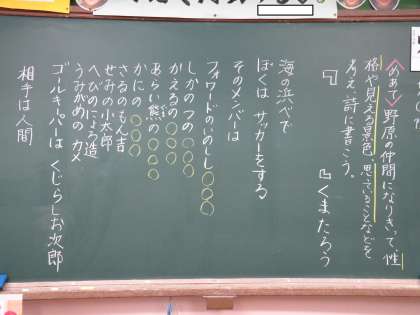 <めあて> 野原の仲間になりきって、性
格や見える景色、思っていることなどを
考え、詩に書こう。
『　　　　』くまたろう
海の浜べで
ぼくは サッカーをする
そのメンバーは
フォワードのいのしし〇〇〇
しかのつの〇〇〇
かえるの〇〇〇〇
あらい熊の〇〇〇〇
かにの〇〇〇
さるのもん吉
せみの小太郎
へびのにょろ造
うみがめの カメ
ゴールキーパーは くじらしお次郎
相手は人間